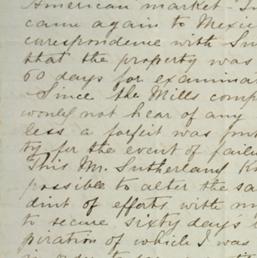 American market. In
came again to Mexic
corespondence with Su
that the property was
60 days for examinat
Since the Mills comp
would not hear of any
less a forfeit was put
ty for the event of failu
This Mr. Sutherland
possible to alter the sa
dint of efforts with m
to secure sixty day's
piration of which I was